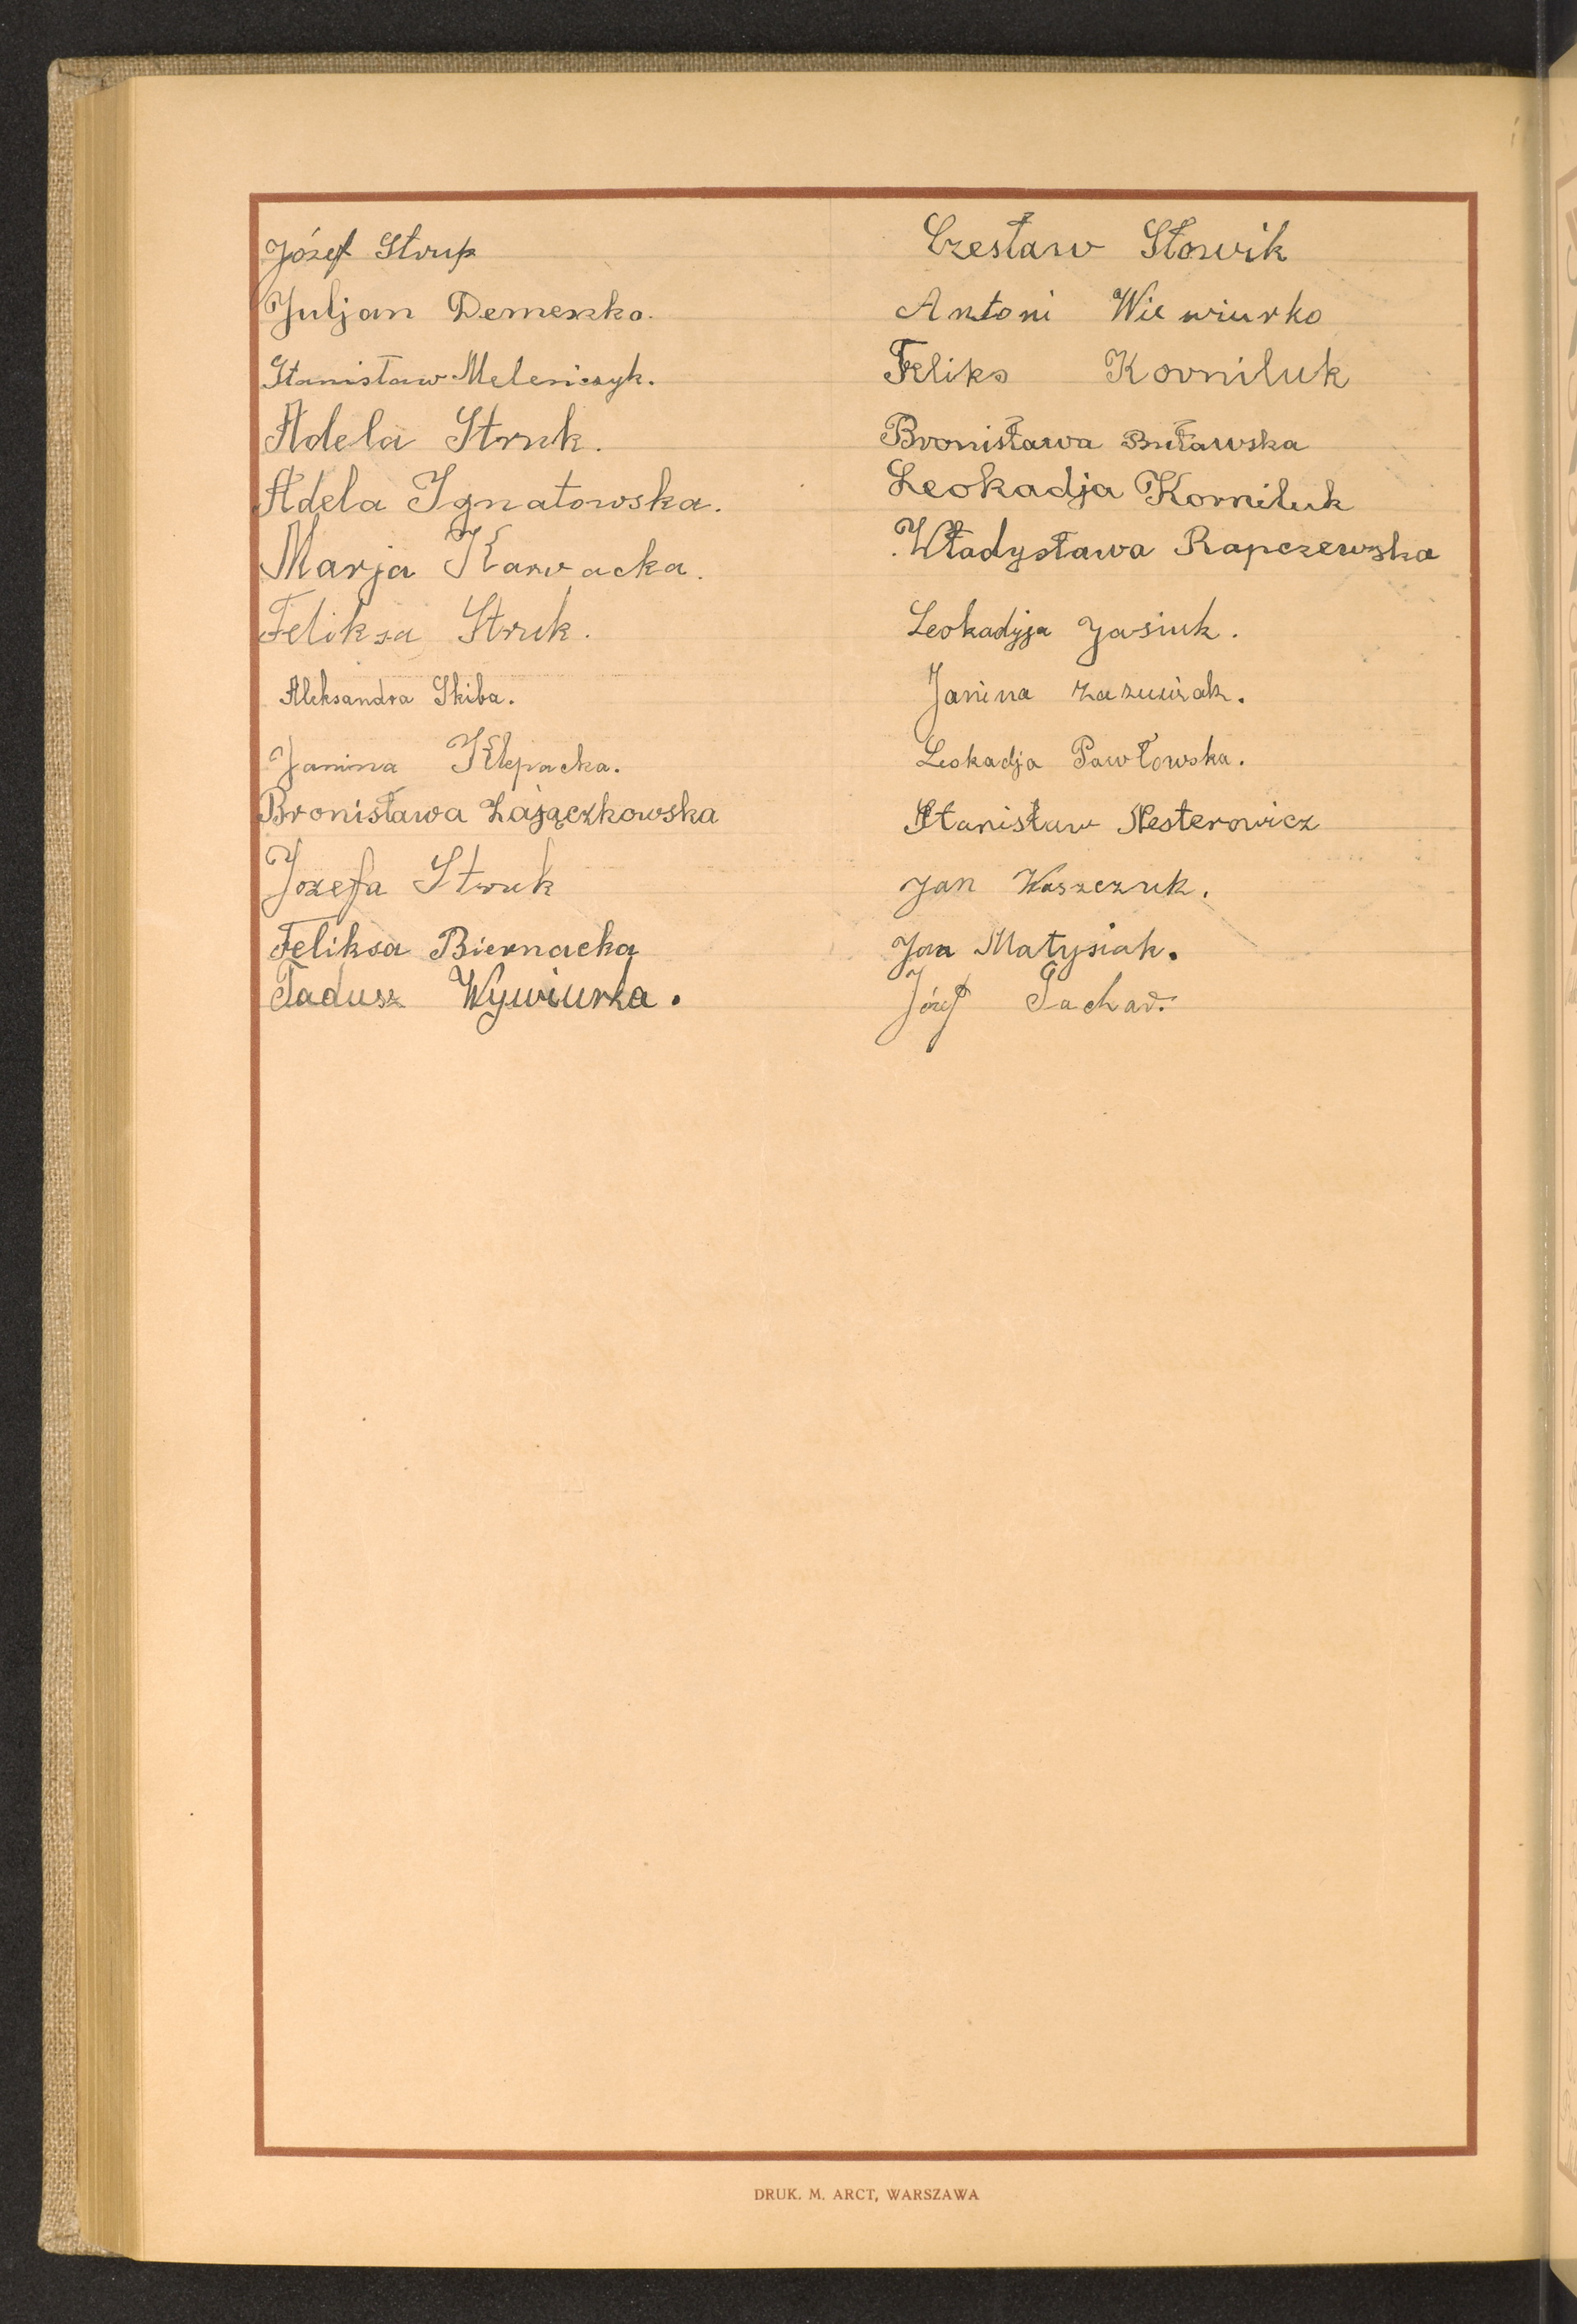 Józef Struk
Juljan Demeszko.
Stanisław Meleńczyk.
Adela Struk.
Adela Ignatowska.
Marja Karwacka.
Feliksa Struk.
Aleksandra Skiba.
Janina Klepacka.
Bronisława Zajączkowska
Jozefa Struk
Feliksa Biernacka
Tadusz Wywiurka.
Czesław Słowik
Antoni Wiewiurko
Feliks Korniluk
Bronisława Buławska
Leokadja Korniluk
Władysława Rapczewska
Leokadyja Jasiuk.
Janina
Leokadja Pawłowska.
Stanisław Nesterowicz
Jan Waszczuk.
Jan Matysiak.
Józef Pachar.
DRUK. M. ARCT, WARSZAWA